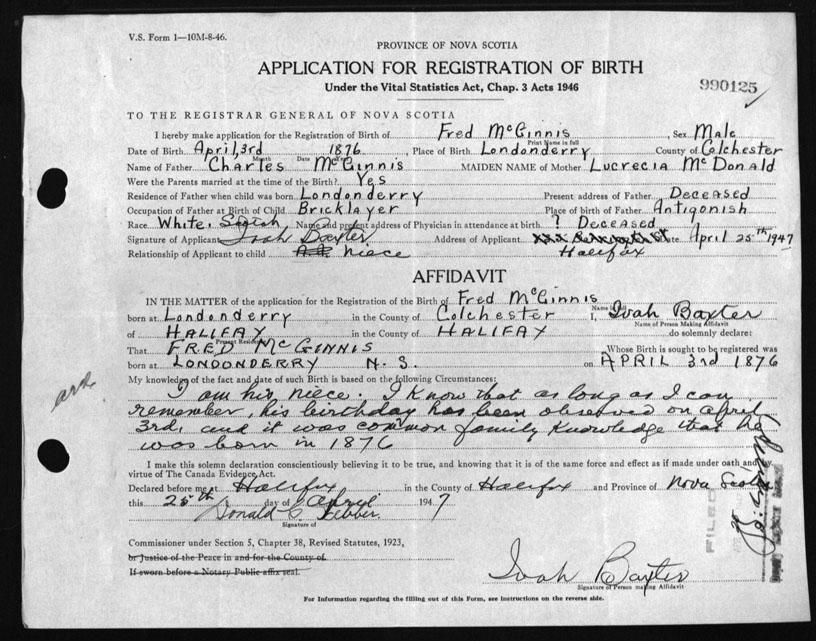 V.S. Form 1—10M-8-46.
PROVINCE OF NOVA SCOTIA
APPLICATION FOR REGISTRATION OF BIRTH
Under the Vital Statistics Act, Chap. 3 Acts 1946
990125
TO THE REGISTRAR GENERAL OF NOVA SCOTIA
I hereby make application for the Registration of Birth of Fred McGinnis, Sex Male
Print Name in full
Date of Birth April, 3rd 1876, Place of Birth Londonderry County of Colchester
Month Date
Name of Father Charles McGinnis MAIDEN NAME of Mother Lucrecia McDonald
Were the Parents married at the time of the Birth? Yes
Residence of Father when child was born Londonderry Present address of Father Deceased
Occupation of Father at Birth of Child Bricklayer Place of birth of Father Antigonish
Race White, Scotch Name and present address of Physician in attendance at birth ? Deceased
Signature of Applicant Ivah Baxter Address of Applicant Date April 25th 1947
Relationship of Applicant to child niece Halifax
AFFIDAVIT
IN THE MATTER of the application for the Registration of the Birth of Fred McGinnis
born at Londonderry in the County of Colchester I, Ivah Baxter
Name of Person Making Affidavit
of HALIFAX in the County of HALIFAX do solemnly declare:
Present Residence
That FRED McGINNIS Whose Birth is sought to be registered was
born at LONDONDERRY N.S. on APRIL 3rd 1876
My knowledge of the fact and date of such Birth is based on the following Circumstances:
I am his niece. I know that as long as I can
remember, his birthday has been observed on April
3rd, and it was common family knowledge that he
was born in 1876
I make this solemn declaration conscientiously believing it to be true, and knowing that it is of the same force and effect as if made under oath and by
virtue of The Canada Evidence Act.
Declared before me at Halifax in the County of Halifax and Province of Nova Scotia
this 25th day of April 1947
Donald C.
Signature of
Commissioner under Section 5, Chapter 38, Revised Statutes, 1923,
or Justice of the Peace in and for the County of
If sworn before a Notary Public affix seal.
FILED
Ivah Baxter
Signature of Person making Affidavit
For Information regarding the filling out of this Form, see instructions on the reverse side.